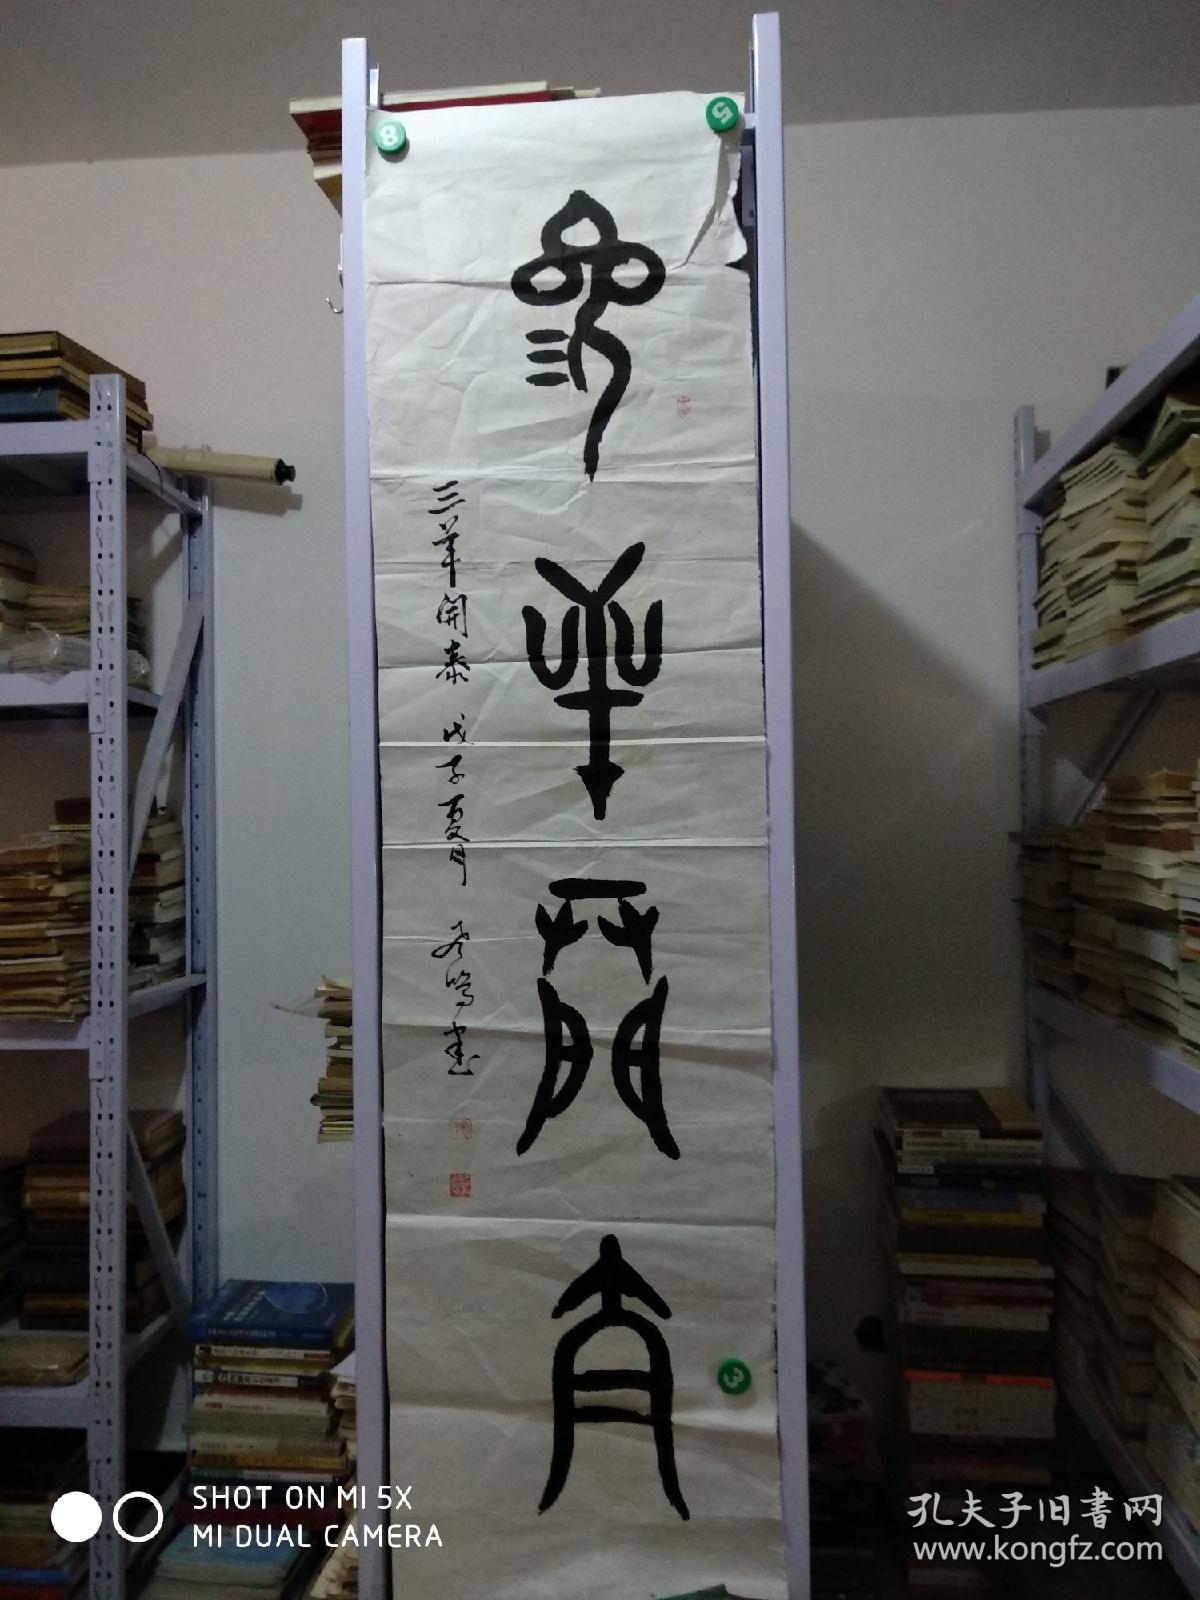 叁羊開泰
三羊開泰 戊子夏月
書
8
5
3
SHOT ON MI 5X
MI DUAL CAMERA
孔夫子旧書网
www.kongfz.com